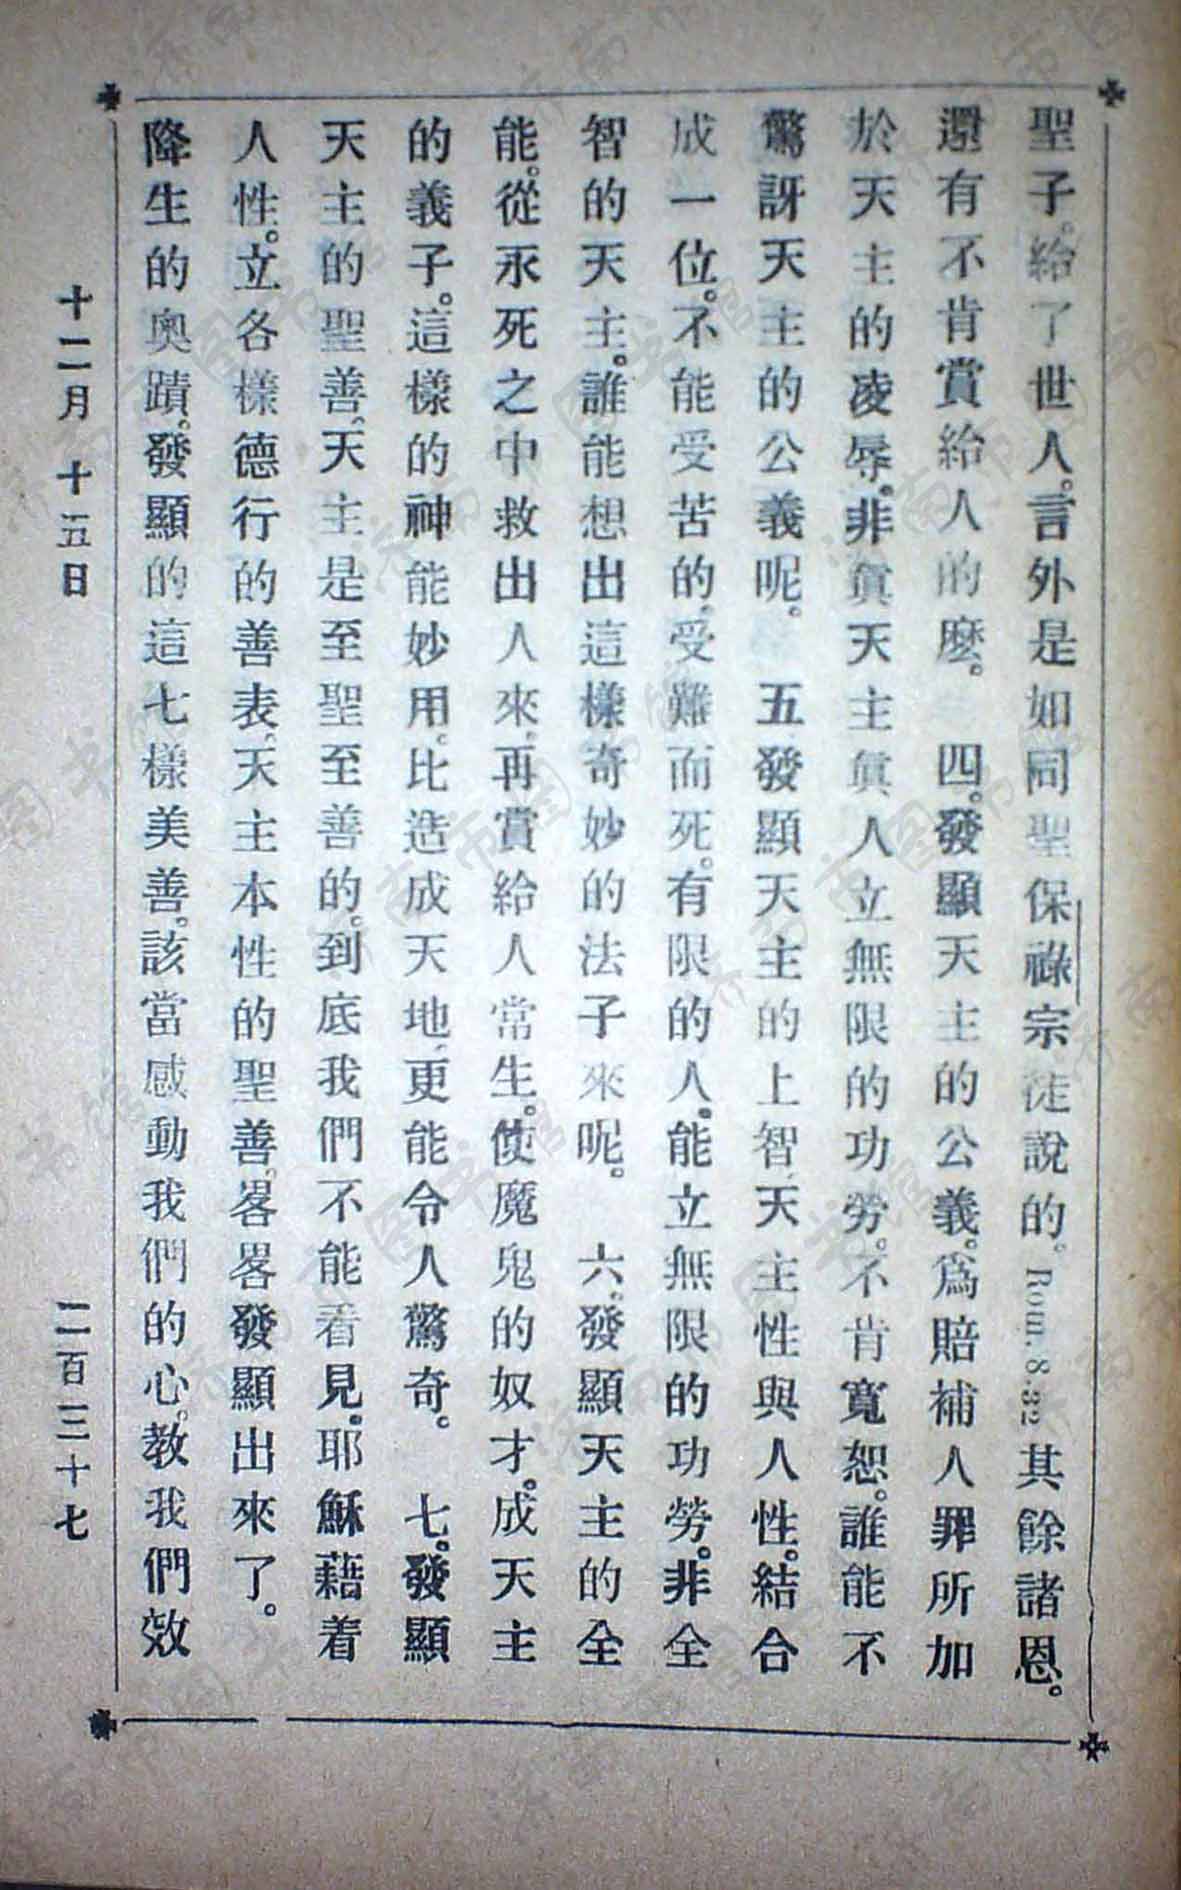 聖子。給了世人。言外是如同聖保祿宗徒說的。Rom. 8.32其餘諸恩。
還有不肯賞給人的麽。 四。發顯天主的公義。爲賠補人罪所加
於天主的凌辱。非眞天主眞人立無限的功勞。不肯寬恕。誰能不
驚訝天主的公義呢。 五發顯天主的上智、天主性與人性。結合
成一位。不能受苦的。受難而死。有限的人。能立無限的功勞。非全
智的天主。誰能想出這樣奇妙的法子來呢。 六。發顯天主的全
能。從永死之中救出人來、再賞給人常生。使魔鬼的奴才。成天主
的義子。這樣的神能妙用。比造成天地、更能令人驚奇。 七。發顯
天主的聖善、天主是至聖至善的。到底我們不能看見。耶穌藉着
人性。立各樣德行的善表、天主本性的聖善、畧畧發顯出來了。
降生的奧蹟、發顯的這七樣美善。該當感動我們的心。教我們效
十二月 十五日 二百三十七
济南市图书馆